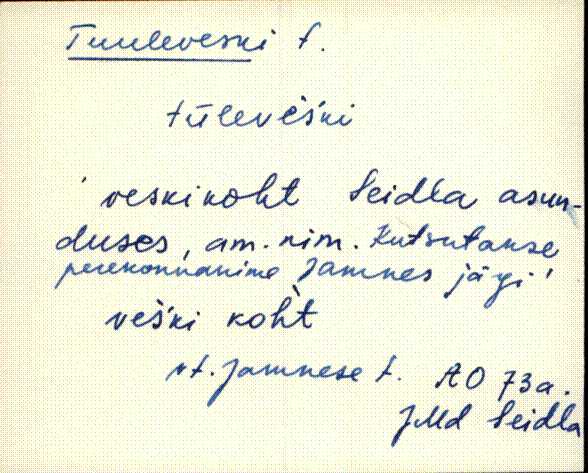 Tuuleveski t.
tūleve̮ški
' veskikoht Seidla asun-
duses, am. nim. Kutsutakse
perekonnanime Jamnes järgi '
veški koh̀t
vt. Jamnese t. AO 73a.
JMd Seidla